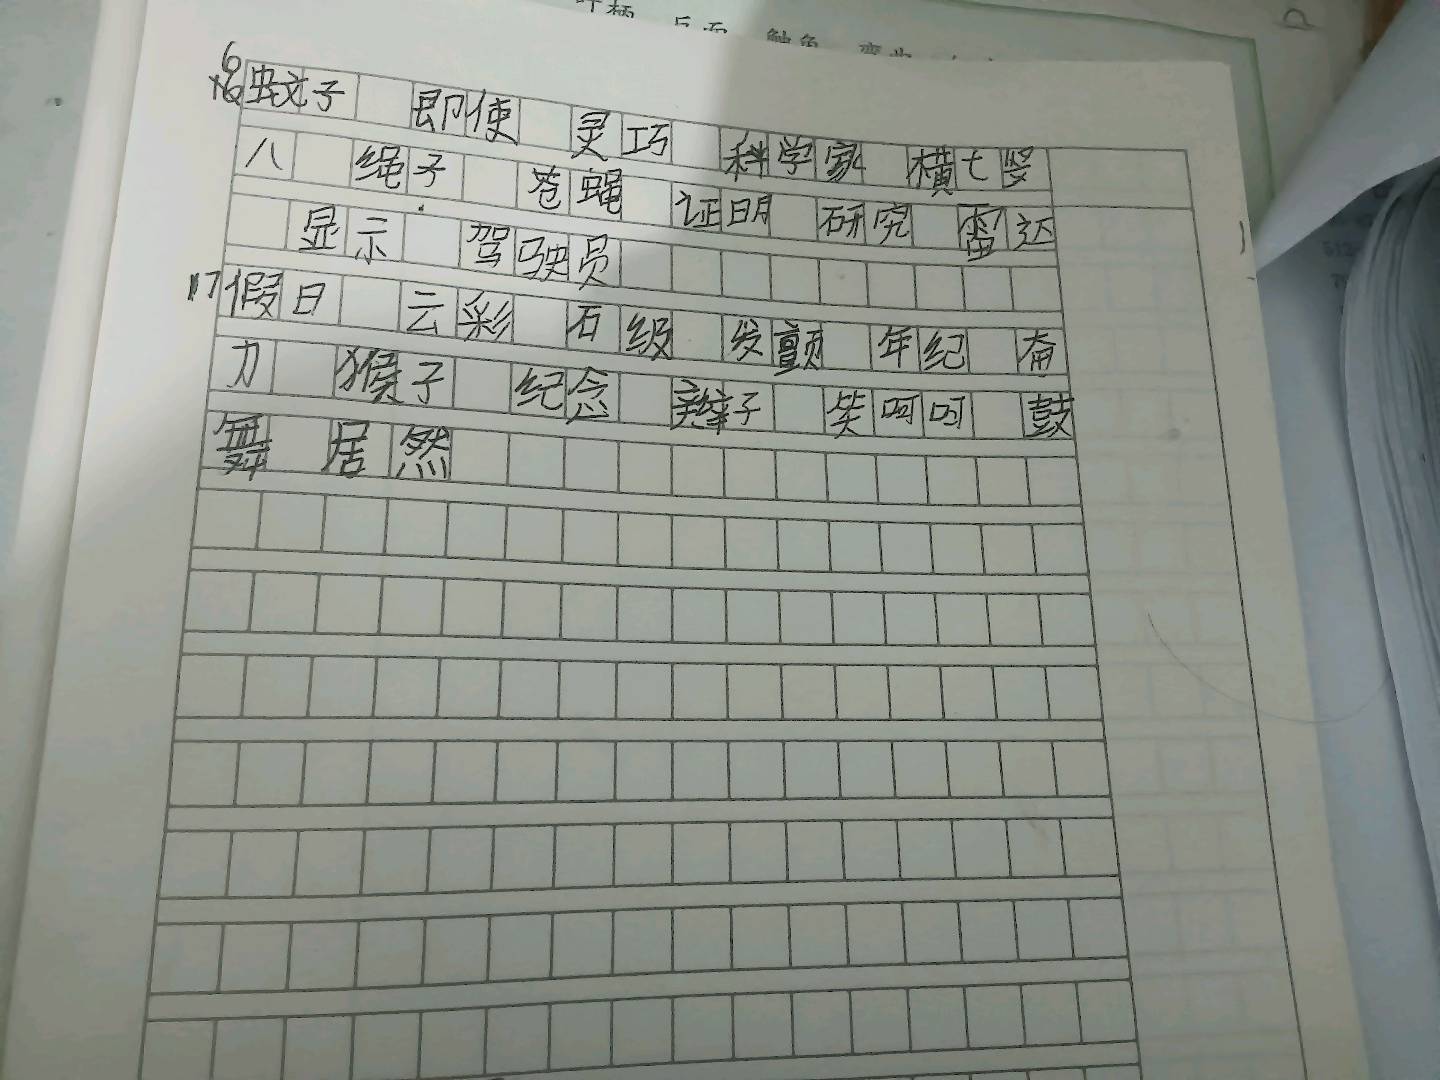 6 蚊子 即使 灵巧 科学家 横七竖
八 绳子 苍蝇 证明 研究 雷达
显示 驾驶员
17 假日 云彩 石级 发颤 年纪 奋
力 猴子 纪念 辫子 笑呵呵 鼓
舞 居然